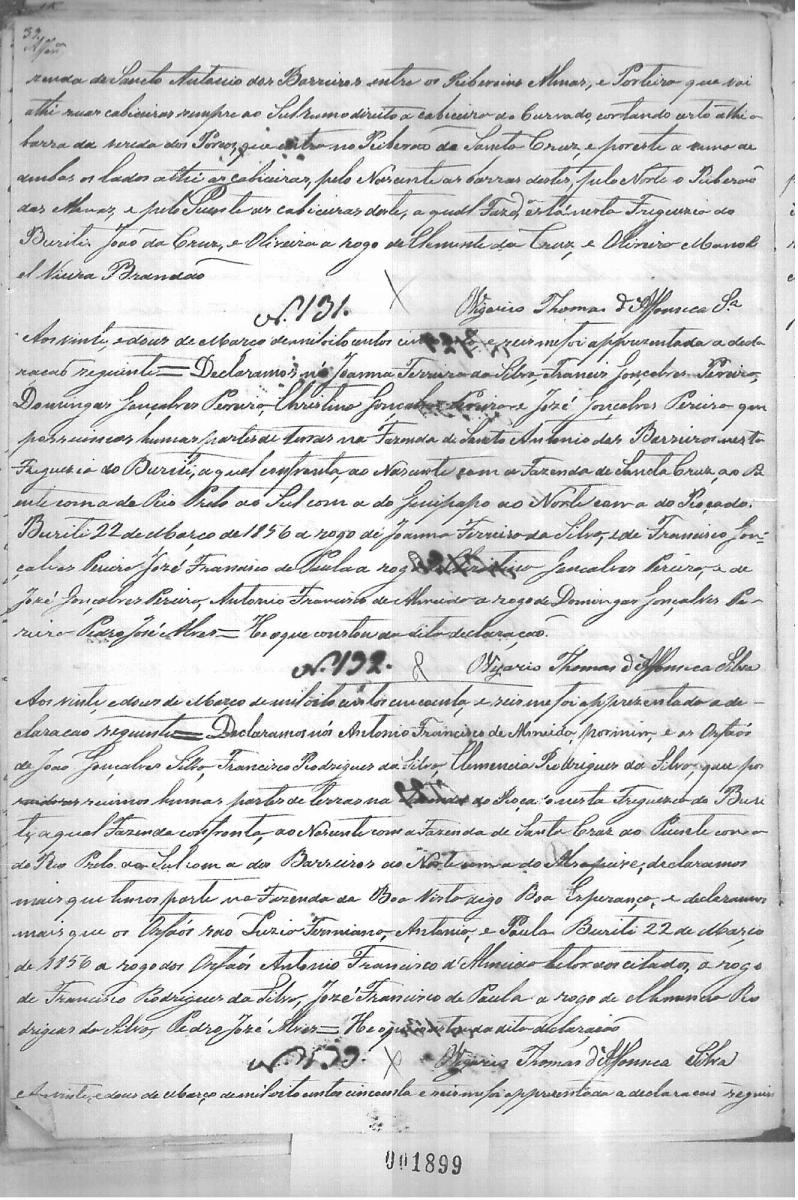 32
zenda de Sancto Antonio dos Barreiros entre os Ribeiroins Almas, e Porteiro que vai
athi suas cabiceiras sempre ao Sul rumo direito a cabiceira do Curvado, cortando certo athi a
barra da vereda dos Porcos, que entra no Ribeirao da Santa Cruz, e por este a cima de
ambos os lados athi as cabiceiras, pelo Nascente as barras destes, pelo Norte o Ribeirao
das Almas, e pelo Puente as cabiceiras deste, a qual Fazda está nesta Freguezia do
Buriti. João da Cruz, e Oliveira a rogo de Clemente da Cruz, e Oliveira Mano
el Vieira Brandão
N. 131. Vigario Thomas d'Affonceca Sa
Aos vinte, e dous de Março de mil oito centos e seis me foi appresentada a decla
ração seguinte = Declaramos nós Joanna Ferreira da Silva, Francis Gonçalves Pereira,
Domingas Gonçalves Pereira, Christino Gonçalves Pereira e José Gonçalves Pereira que
possuimos humas partes de terras na Fazenda de Sancto Antonio dos Barreiros nesta
Freguezia do Buriti, a qual confronta, ao Nascente com a Fazenda de Sancta Cruz, ao Pu
ente com a do Rio Preto ao Sul com a do Genipapo ao Norte com a do Roçado.
Buriti 22 de Março de 1856 a rogo de Joanna Ferreira da Silva, e de Francisco Gon-
çalves Pereira, José Francisco de Paula a rogo Gonçalves Pereira, e de
José Gonçalves Pereira, Antonio Francisco de Almeida a rogo de Domingas Gonçalves Pe-
reira Pedro José Alves = He o que constou da dita declaração.
N. 132. Vigario Thomas d'Affonceca Silva
Aos vinte, e dous de Março de mil oito centos cincoenta, e seis me foi appresentado a de-
claracao seguinte = Declaramos nós Antonio Francisco de Almeida, por mim, e os Orfaõs
de João Gonçalves Silva, Francisco Rodrigues da Silva, Clemencia Rodrigues da Silva, que pos
suimos humas partes de terras na do Roçado nesta Freguezia do Buri
ti, a qual Fazenda confronta, ao Nascente com a Fazenda de Santa Cruz ao Puente com a
do Rio Preto ao Sul com a dos Barreiros ao Norte com a do declaramos
mais que temos parte na Fazenda da Boa Vista digo Boa Esperança, e declaramos
mais que os Orfaõs sao Luzia Firmiano, Antonio, e Paula Buriti 22 de Março
de 1856 a rogo dos Orfaõs Antonio Francisco d'Almeida tutor dos citados, a rogo
de Francisco Rodrigues da Silva, José Francisco de Paula a rogo de Clemencia Ro
drigues da Silva, Pedro José Alves = He o que consta da dita declaração
N. 133. Vigario Thomas d'Affonceca Silva
Aos vinte, e dous de Março de mil oito centos cincoenta e seis me foi appresentada a declaracao seguin
001899